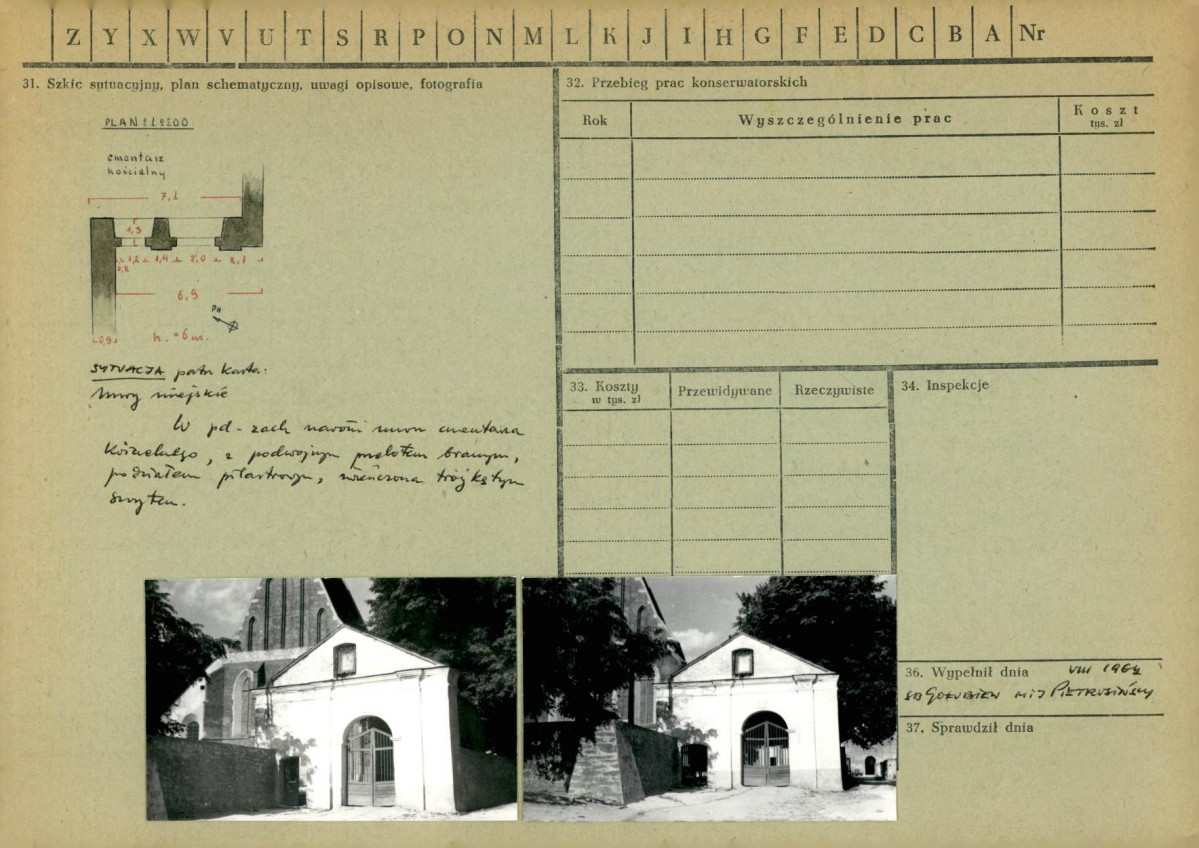 Z Y X W V U T S R P O N M L K J I H G F E D C B A Nr
31. Szkic sytuacyjny, plan schematyczny, uwagi opisowe, fotografia
PLAN 1:200
cmentarz
kościelny
7,1
1,3
1,2 1,4 2,0 2,1
6,9
PN
0,9
h. = 6 m.
SYTUACJA patrz karta:
Mury miejskie
W pd-zach narożu muru cmentarza
kościelnego, z podwójnym przelotem bramnym,
podziałem pilastrowym, zwieńczona trójkątnym
szczytem.
32. Przebieg prac konserwatorskich
Rok
Wyszczególnienie prac
Koszt
tys. zł
33. Koszty
w tys. zł
Przewidywane
Rzeczywiste
34. Inspekcje
36. Wypełnił dnia VIII 1964
37. Sprawdził dnia